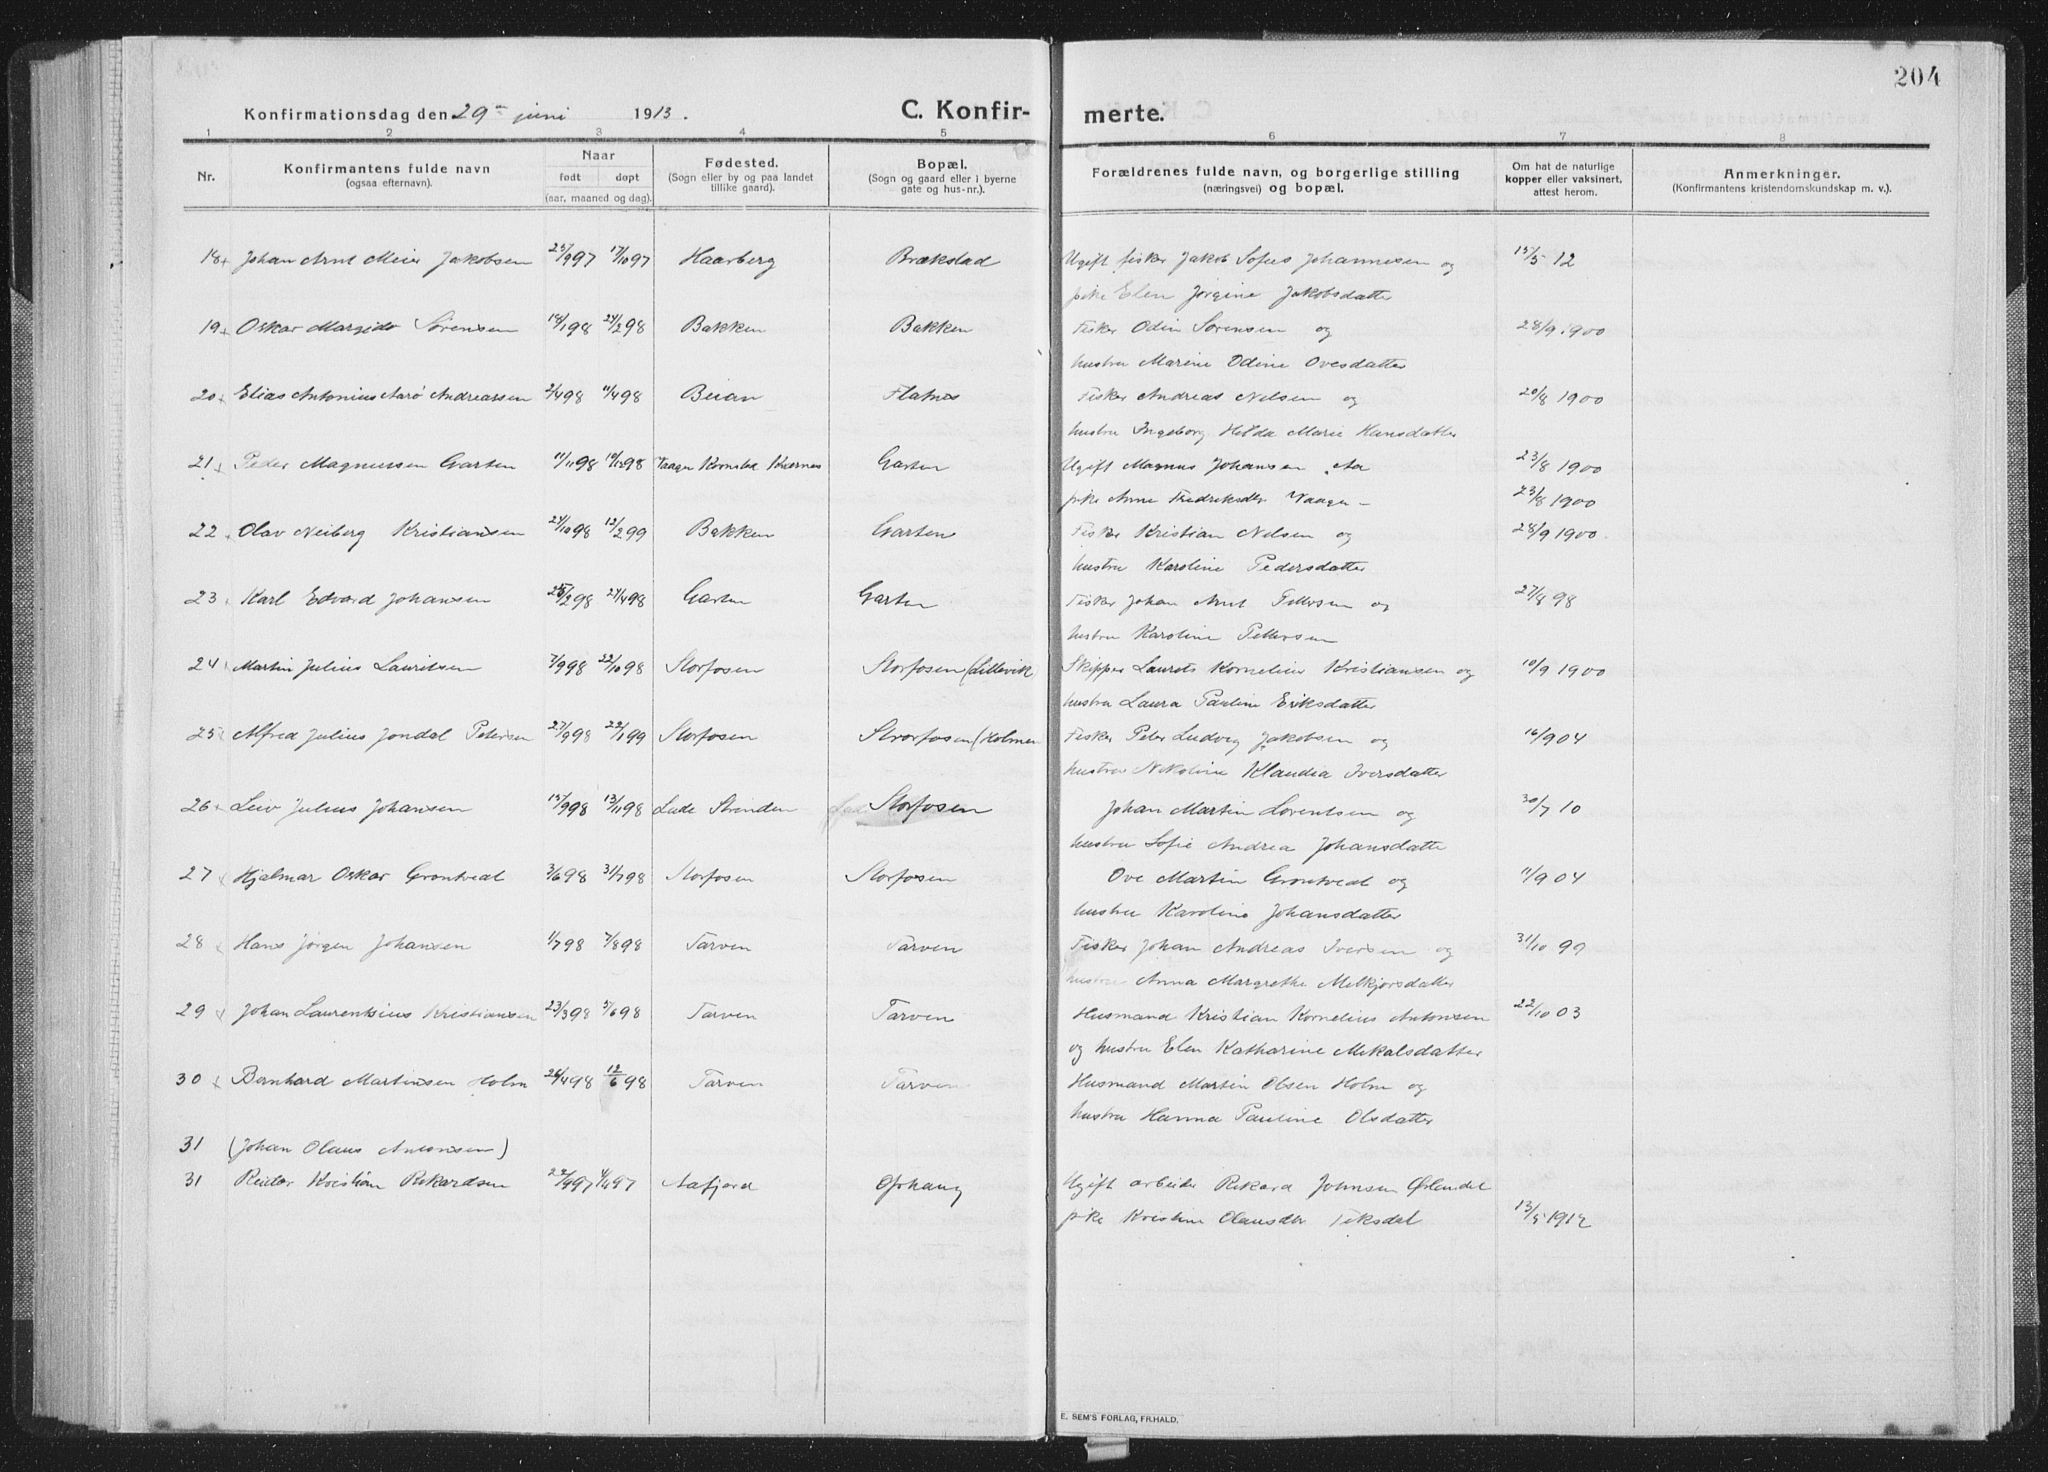 204
Konfirmationsdag den 29de juni 1913. C. Konfir- merte.
1 2 3 4 5 6 7 8
Nr. Konfirmantens fulde navn (ogsaa efternavn). Naar født døpt (aar, maaned og dag). Fødested. (Sogn eller by og paa landet tillike gaard). Bopæl. (Sogn og gaard eller i byerne gate og hus-nr.). Forældrenes fulde navn, og borgerlige stilling (næringsvei) og bopæl. Om hat de naturlige kopper eller vaksinert, attest herom. Anmerkninger. (Konfirmantens kristendomskundskap m. v.).
18 + Johan Arnt Meier Jakobsen 25/9 97 17/10 97 Haarberg Brækstad Ugift fisker Jakob Sofus Johannesen og 15/5 12
pike Elen Jørgine Jakobsdatter
19 + Oskar Margido Sørensen 18/1 98 24/2 98 Bakken Bakken Fisker Odin Sørensen og 28/9 1900
hustru Marine Odine Ovesdatter
20 + Elias Antonius Aarø Andreassen 2/4 98 11/4 98 Beian Flatnes Fisker Andreas Nelsen og 20/8 1900
hustru Ingeborg Helda Marie Hansdatter
21 + Peder Magnussen Garten 11/11 98 19/12 98 Vaagen Kornstad Kvernes Garten Ugift Magnus Johansen Aa 23/8 1900
pike Anne Fredriksdtr Vaagen - 23/8 1900
22 + Olav Neiberg Kristiansen 24/10 98 12/2 99 Bakken Garten Fisker Kristian Nelsen og 28/9 1900.
hustru Karoline Pedersdatter
23 Karl Edvard Johansen 25/2 98 24/4 98 Garten Garten Fisker Johan Arnt Pettersen og 27/8 98
hustru Karoline Pettersen
24 Martin Julius Lauritsen 7/9 98 22/10 98 Storfosen Storfosen (Lillevik Skipper Laurits Kornelius Kristiansen og 10/9 1900
hustru Laura Pauline Eriksdatter
25 Alfred Julius Jondal Petersen 27/9 98 22/1 99 Storfosen Storfosen (Holmen Fisker Peter Ludvig Jakobsen og 16/9 04
hustru Nikoline Klaudia Iversdatter
26 + Leiv Julius Johansen 15/9 98 13/11 98 Lade Strinden Storfosen Johan Martin Lorentsen og 30/7 10
hustru Sofie Andrea Johansdatter
27 Hjalmar Oskar Grøntvedt 3/6 98 31/7 98 Storfosen Storfosen Ove Martin Grøntvedt og 11/9 04
hustru Karoline Johansdatter
28 Hans Jørgen Johansen 1/7 98 7/8 98 Tarven Tarven Fisker Johan Andreas Iversen og 31/10 99
hustru Anna Margrethe Melkjorsdatter
29 Johan Laurentsius Kristiansen 23/3 98 5/6 98 Tarven Tarven Husmand Kristian Kornelius Antonsen 22/10 03
og hustru Elen Katharine Mikalsdatter
30 + Bernhard Martinsen Holm 26/4 98 12/6 98 Tarven Tarven Husmand Martin Olsen Holm og
hustru Hanna Pauline Olsdatter
31 (Johan Olaus Antonsen)
31 Reidar Kristian Rikardsen Aafjord Ophaug Ugift arbeider Rikard Johnsen Ørlandet
pike Kristine Olausdtr Teksdal 13/5 1912
E. SEM'S FORLAG, FR.HALD.